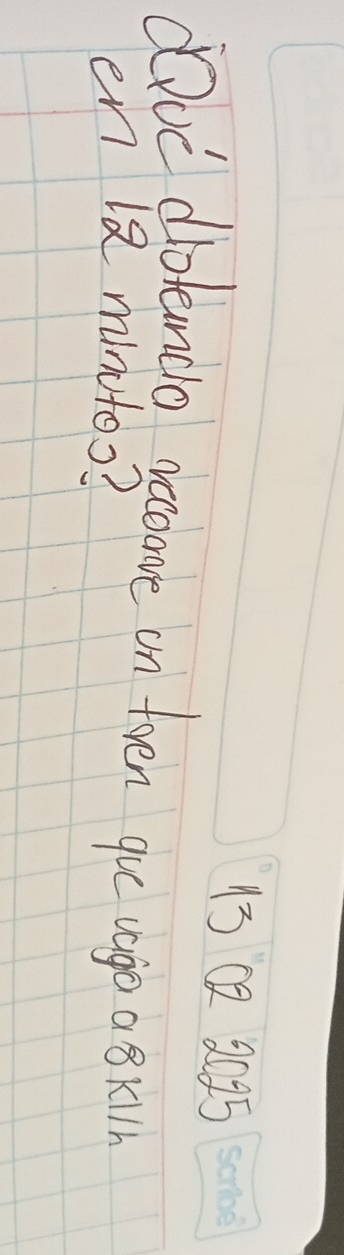 13 02 2025
Scribe
¿Qué distancia recorre un tren que viaja a 8 Kl/h
en 12 minutos?